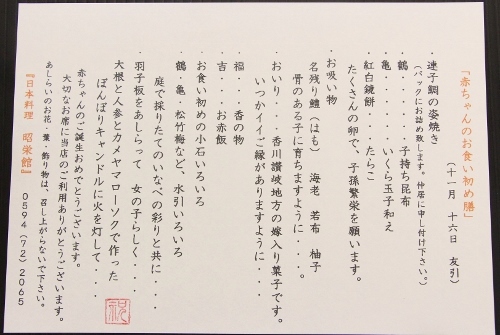 「赤ちゃんのお食い初め膳」
(十一月 十六日 友引)
・連子鯛の姿焼き
(パックにお詰め致します。仲居に申し付け下さい。)
・鶴・・・・・・子持ち昆布
・亀・・・・・・いくら玉子和え
・紅白鏡餅・・・・たらこ
たくさんの卵で、子孫繁栄を願います。
・お吸い物
名残り鱧(はも) 海老 若布 柚子
骨のある子に育ちますように・・・・。
・おいり・・・香川讃岐地方の嫁入り菓子です。
いつかイイご縁がありますように・・・・
・福・・・香の物
・吉・・・お赤飯
・お食い初めの小石いろいろ
・鶴・亀・松竹梅など、水引いろいろ
庭で採りたてのいなべの彩りと共に・・・
・羽子板をあしらって 女の子らしく・・・
大根と人参とカメヤマローソクで作った
ぼんぼりキャンドルに火を灯して・・・・
赤ちゃんのご誕生おめでとうございます。
大切なお席に当店のご利用ありがとうございます。
あしらいのお花・葉・飾り物は、召し上がらないで下さい。
『日本料理 昭栄館』 0594(72)2065
祝